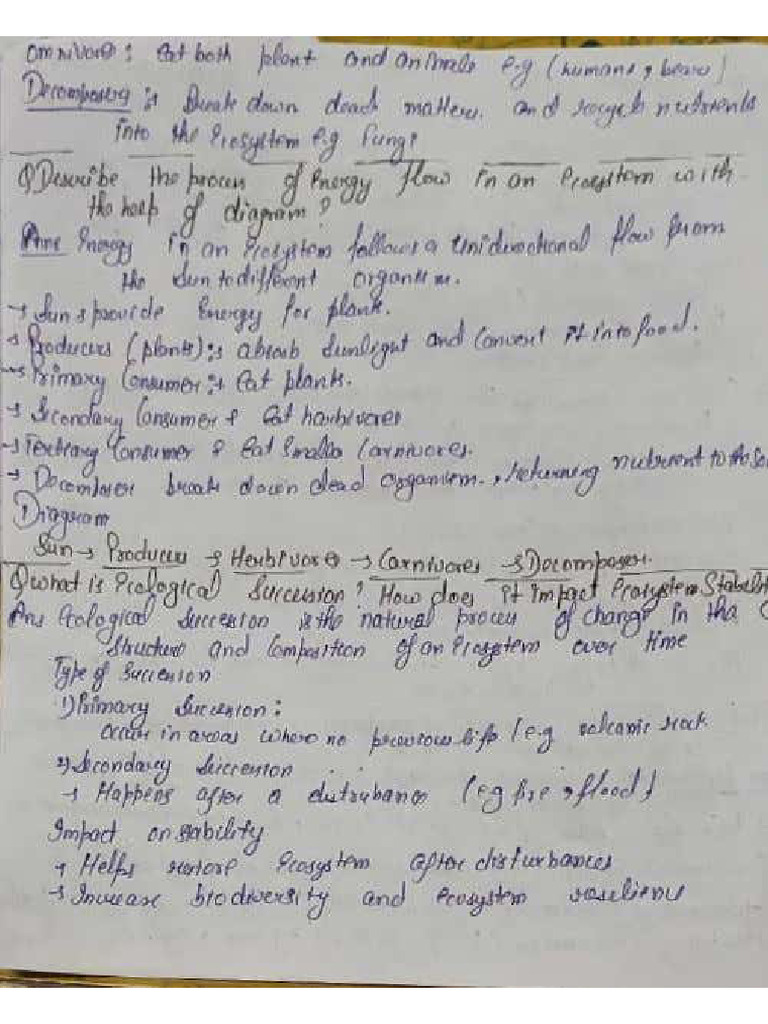 omnivore : Eat both plant and animals e.g (humans, bears)
Decomposers : Break down dead matters. and recycle nutrients
into the Ecosystem e.g Fungi
Q Describe the process of Energy flow in an Ecosystem with
the help of diagram?
Ans Energy in an Ecosystem follows a Unidirectional flow from
the Sun to different organism.
→ Sun : provide Energy for plants.
→ Producers (plants) : absorb sunlight and Convert it into food.
→ Primary Consumer : Eat plants.
→ Secondary Consumer : Eat harbivores
→ Tertiary Consumer : Eat Smaller Carnivores.
→ Decomposer break down dead organism, returning nutrient to the
Diagram
Sun → Producers → Herbivore → Carnivores → Decomposer.
Q what is Ecological Succession? How does it impact Ecosystem
Ans Ecological Succession is the natural process of change in the
structure and Composition of an Ecosystem over time
Type of Succession
1) Primary Succession :
occur in areas where no previous life (e.g volcanic rock
2) Secondary Succession
→ Happens after a distrubance (e.g fire, flood)
Impact on stability
→ Helps restore Ecosystem after disturbances
→ Increase biodiversity and ecosystem